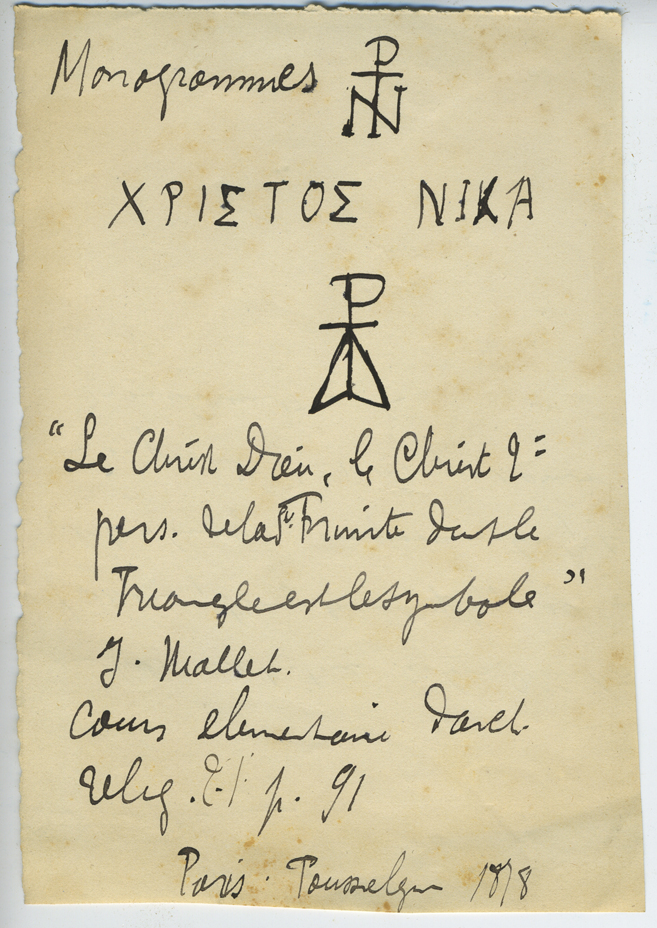 Monogrammes
ΧΡΙΣΤΟΣ ΝΙΚΑ
"Le Christ Dieu, le Christ 2=
pers. de la Ste Trinité dont le
Triangle est le symbole"
J. Mallet.
Cours elementaire d'arch.
relig. T.1 p. 91
Paris. Poussielgue 1878